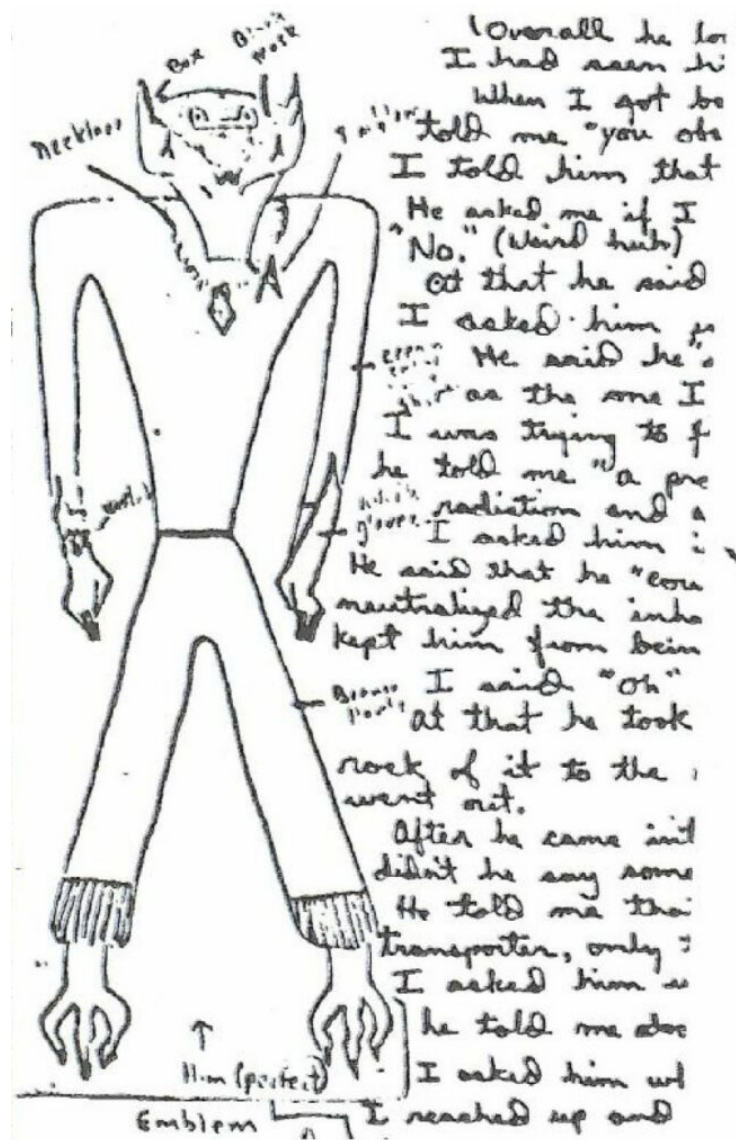 Box
Necklace
Overall he lo
I had seen hi
When I got ba
told me "you obs
I told him that
He asked me if I
"No." (Weird huh)
at that he said
I asked him
He said he "
as the one I
I was trying to f
he told me "a pre
radiation and a
gloves
I asked him i
He said that he "cou
neutralized the inha
kept him from bein
I said "oh"
Brown Pants
at that he took
rock of it to the
went out.
After he came int
didn't he say some
He told me tha
transporter, only
I asked him w
he told me abo
Him (perfect)
I asked him wh
Emblem
I reached up and